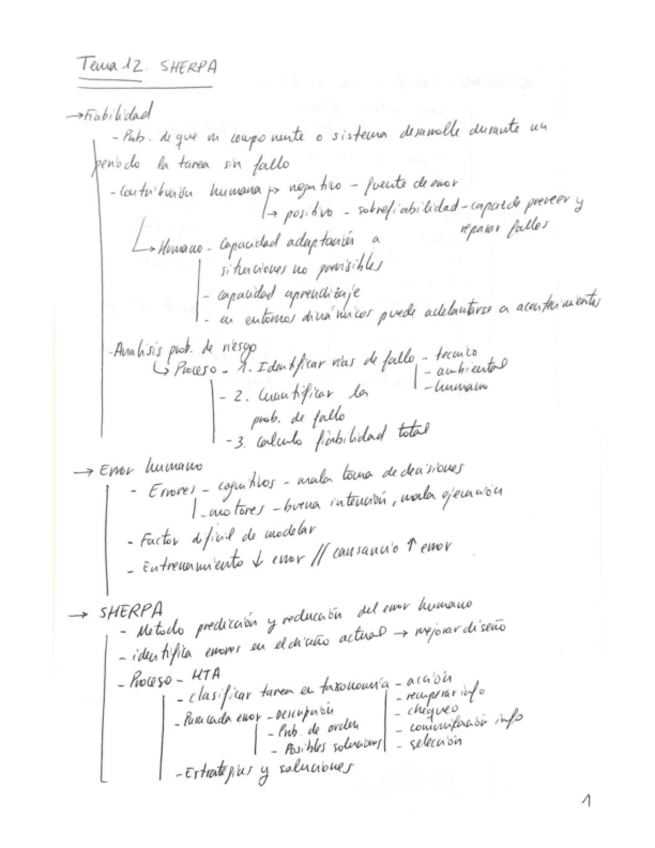 Tema 12. SHERPA
→ Fiabilidad
- Prob. de que un componente o sistema desarrolle durante un
periodo la tarea sin fallo
- Contribución humana → negativo - fuente de error
→ positivo - sobrefiabilidad - capaz de preveer y
reparar fallos
→ Humano - Capacidad adaptación a
situaciones no previsibles
- capacidad aprendizaje
- en entornos dinámicos puede adelantarse a acontecimientos
- Analisis prob. de riesgo
→ Proceso - 1. Identificar vías de fallo - tecnico
- ambiental
- humano
- 2. Cuantificar la
prob. de fallo
- 3. Calculo fiabilidad total
→ Error humano
- Errores - cognitivos - mala toma de decisiones
- motores - buena intención, mala ejecución
- Factor dificil de modelar
- Entrenamiento ↓ error // cansancio ↑ error
→ SHERPA
- Metodo predicción y reducción del error humano
- identifica errores en el diseño actual → mejorar diseño
- Proceso - HTA
- clasificar tarea en taxonomía - acción
- recuperar info
- chequeo
- comunicación info
- selección
- Para cada error - Descripción
- Prob. de orden
- Posibles soluciones
- Estrategias y soluciones
1